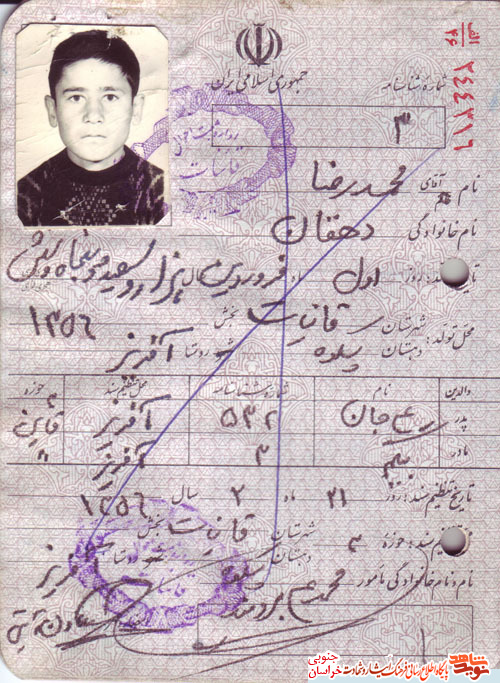 جمهوری اسلامی ایران
شماره شناسنامه
۳
نام آقای محمدرضا
نام خانوادگی دهقان
روز اول ماه فروردین سال هزار و سیصد و پنجاه و شش
۱۳۵۶
محل تولد: شهرستان قائنات بخش
دهستان پسکوه روستا آفریز
والدین نام شماره شناسنامه محل تنظیم سند حوزه
پدر جان ۵۳۲ آفریز قاین
مادر بیگم ۳ آفریز "
تاریخ تنظیم سند: روز ۲۱ ماه ۲ سال ۱۳۵۶
تنظیم سند: حوزه ۳ شهرستان قائنات بخش
دهستان پسکوه روستا آفریز
نام و نام خانوادگی مامور محمد
۱
نوید شاهد
پایگاه اطلاع رسانی فرهنگ ایثار و شهادت خراسان جنوبی